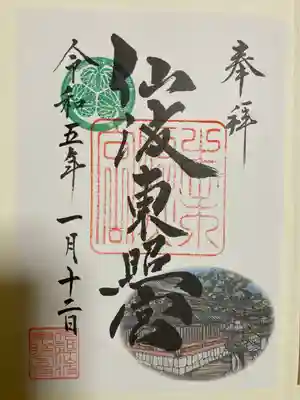 奉拝
仙波東照宮
令和五年 一月十二日